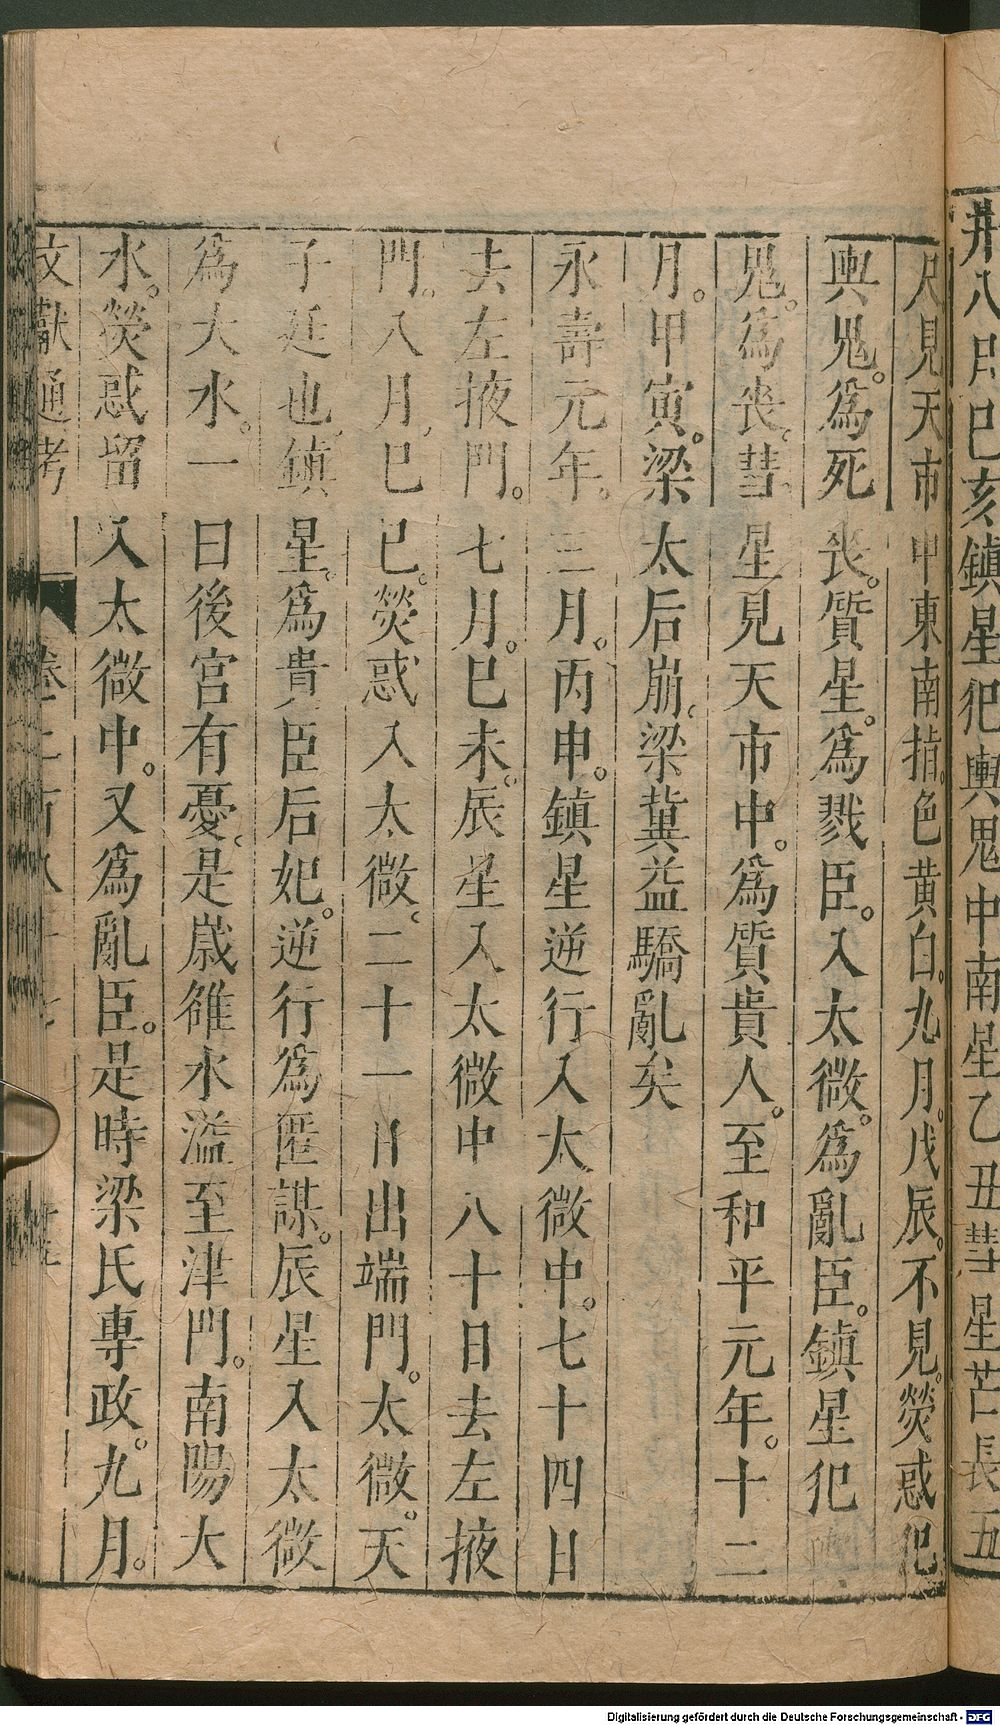 八月巳亥鎮星犯輿鬼中南星乙丑彗星芒長五
尺見天市中東南指。色黄白。九月。戊辰。不見。熒惑犯
輿鬼。爲死喪。質星。爲戮臣。入太微。爲亂臣。鎮星犯
鬼。爲喪。彗星見天市中。爲質貴人。至和平元年。十二
月。甲寅。梁太后崩。梁冀益驕亂矣
永壽元年。三月。丙申。鎮星逆行入太微中。七十四日
去左掖門。七月。巳未。辰星入太微中八十日去左掖
門。八月。巳巳。熒惑入太微。二十一日出端門。太微。天
子廷也。鎮星。爲貴臣后妃。逆行爲匿謀。辰星入太微
爲大水。一曰後宮有憂。是歲雒水溢至津門。南陽大
水。熒惑留入太微中。又爲亂臣。是時梁氏專政。九月。
文獻通考 卷二百八十七
Digitalisierung gefördert durch die Deutsche Forschungsgemeinschaft - DFG